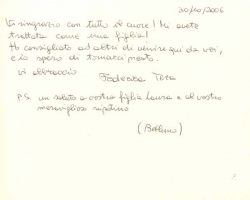 30/10/2006
Vi ringrazio con tutto il cuore! Mi avete
trattata come una figlia!
Ho consigliato ad altri di venire qui da voi,
e io spero di tornarci presto.
Vi abbraccio
Federica
P.S. un saluto a vostra figlia Laura e al vostro
meraviglioso nipotino
(Belluno)